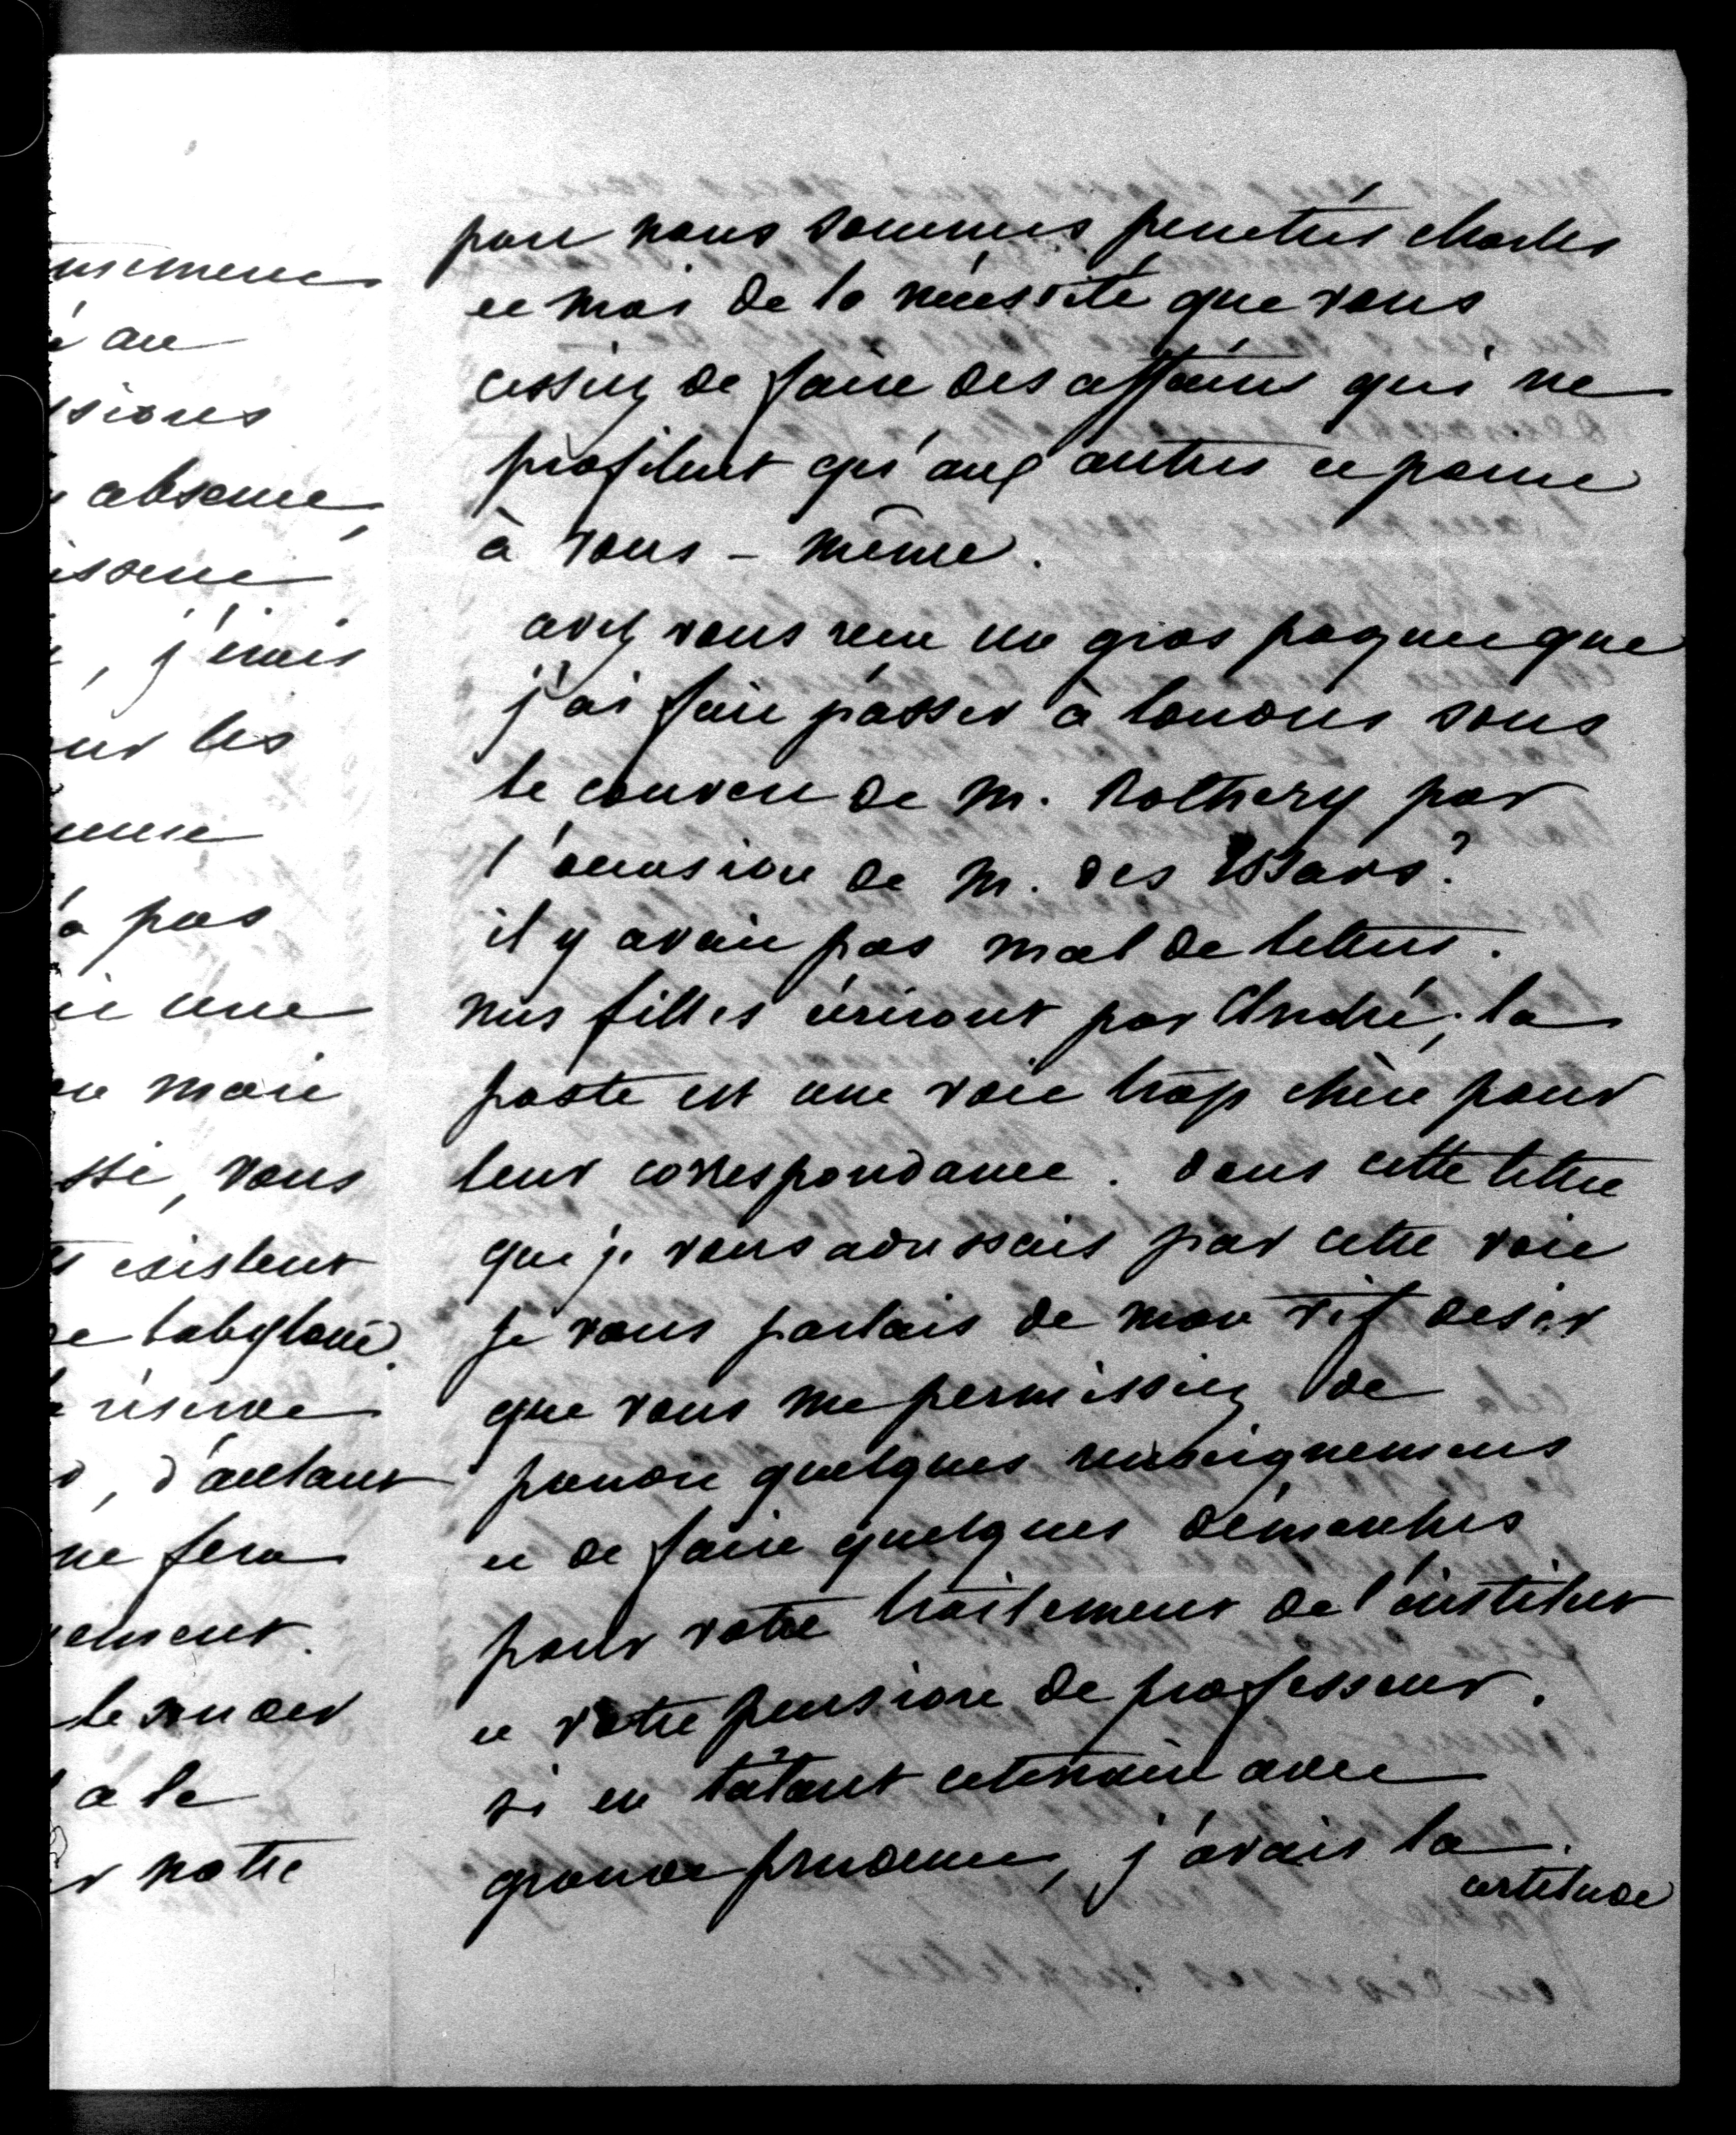 nsemenc
é au
ssions
absence,
issene
, j'irais
ur les
euse
a pas
ie une
on mari
ssi, vous
ts existent
de babylone.
réserve
, d'autant
ne fera
ement.
à la
r notre
part nous sommes penetrés charles
et moi de la nécessité que vous
cessiez de faire des affaires qui ne
profitent qu'aux autres et point
à vous - même.
avez vous reçu un gros paquet que
j'ai fait passer à londres sous
le couvert de M. Rothery par
l'occasion de M. des Essars?
il y avait pas mal de lettres.
nos filles écriront par André; la
poste est une voie trop chère pour
leur correspondance. dans cette lettre
que je vous adressais par cette voie
je vous parlais de mon vif desir
que vous me permissiez de
prendre quelques renseignemens
et de faire quelques démarches
pour votre traitement de l'institut
et votre pension de professeur.
si en tâtant ce terrain avec
grande prudence, j'avais la
certitude